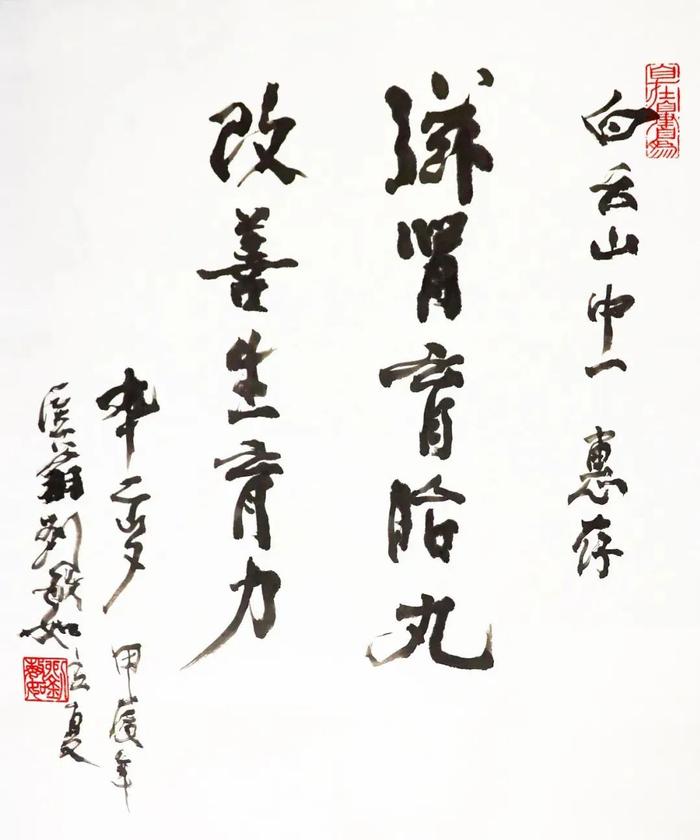 白云山中一 惠存
滋肾育胎丸
改善生育力
卆二岁 甲辰年
医翁刘敏如 立夏
劉敏如